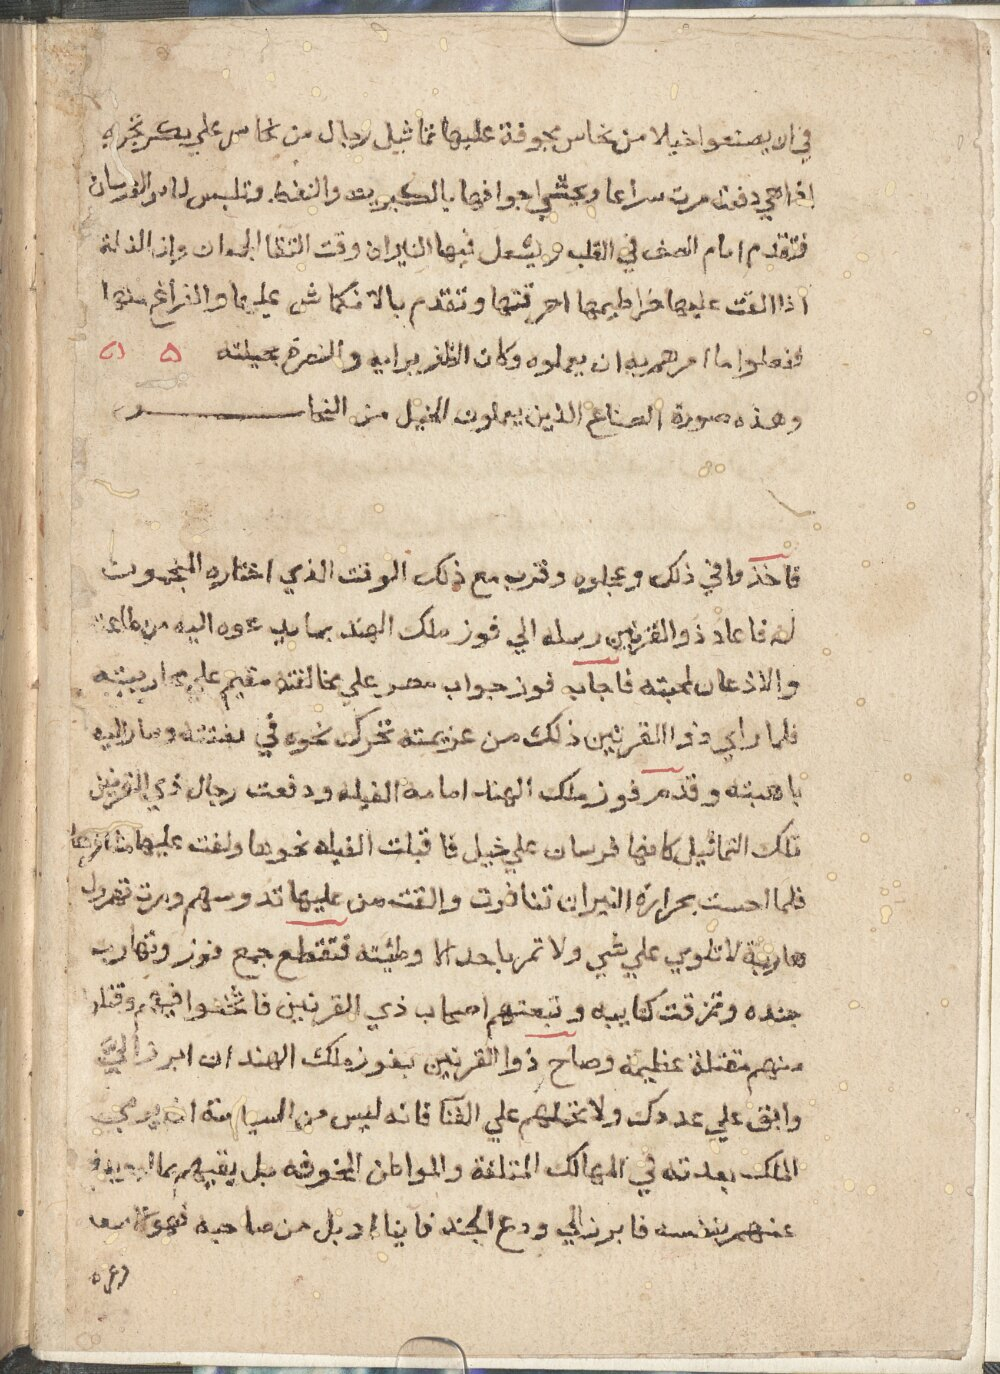 في ان يصنعوا خيلا من نحاس مجوفة عليها تماثيل رجال من نحاس علي بكر تجري
اذا هي دفعت مرت سراعا ويحشي اجوافها بالكبريت والنفط وتلبس
فتقدم امام الصف في القلب ويشعل فيها النيران وقت التقا الجمعان وان الفيلة
اذا القت عليها خراطيمها احرقتها وتقدم بالانكماش عليها والفراغ منها
ففعلوا ما امرهم به ان يعملوه وكان الظفر برايه والنصرة بحيلته ه ه
وهذه صورة الصناع الذين يعملون الخيل من النحاس
فاخذوا في ذلك وعجلوه وقرب مع ذلك الوقت الذي اختاره المنجمون
له فاعاد ذو القرنين رسله الي فوز ملك الهند بما يدعوه اليه من طاعته
والاذعان لمحبته فاجابه فوز جواب مصر علي مخالفته مقيم علي محاربيته
فلما راي ذو القرنين ذلك من عزيمته تحرك نحوه في وسار اليه
باهبته وقدم فوز ملك الهند امامه الفيله ودفعت رجال ذي القرنين
تلك التماثيل كانها فرسان علي خيل فاقبلت الفيله نحوها ولفت عليها
فلما احست بحرارة النيران تنافرت والقت من عليها تدوسهم ومرت تهرول
هاربة لا تلوي علي شي ولا تمر باحد الا وطئته فتقطع جمع فوز وتهارب
جنده وتمزقت كتايبه وتبعتهم اصحاب ذي القرنين فاثخنوا فيهم وقتلوا
منهم مقتلة عظيمة وصاح ذو القرنين بفوز ملك الهند ان ابرز الي
وابق علي عددك ولا تحملهم علي الفنا فانه ليس من السياسة ان يرمي
الملك بعدته في المهالك المتلفة والمواطن المخوفه بل يقيهم بماله ويدفع
عنهم بنفسه فابرز الي ودع الجند فاينا قتل من صاحبه فهو